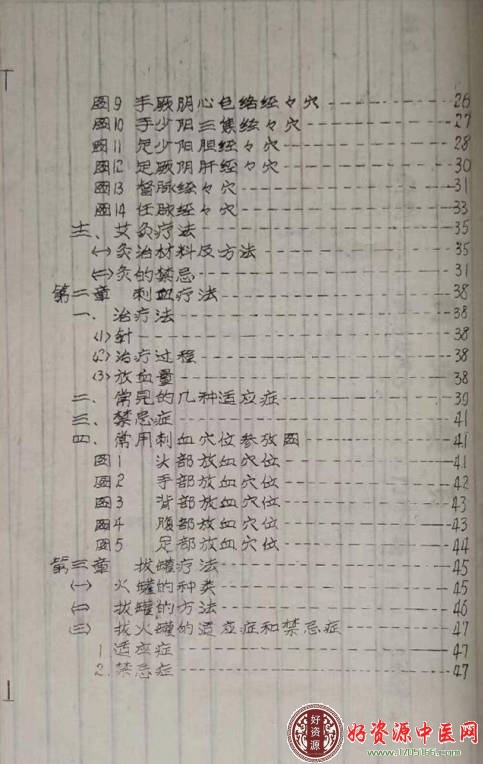 图9 手厥阴心包络经々穴 26
图10 手少阳三焦经々穴 27
图11 足少阳胆经々穴 28
图12 足厥阴肝经々穴 30
图13 督脉经々穴 31
图14 任脉经々穴 33
艾灸疗法 35
㈠灸治材料及方法 35
㈡灸的禁忌 31
第二章 刺血疗法 38
一、治疗法 38
⑴针 38
⑵治疗过程 38
⑶放血量 38
二、常见的几种适应症 39
三、禁忌症 41
四、常用刺血穴位参放图 41
图1 头部放血穴位 41
图2 手部放血穴位 42
图3 背部放血穴位 43
图4 腹部放血穴位 43
图5 足部放血穴位 44
第三章 拔罐疗法 45
㈠ 火罐的种类 45
㈡ 拔罐的方法 46
㈢ 拔火罐的适应症和禁忌症 47
1.适应症 47
2.禁忌症 47
好资源
好资源中医网